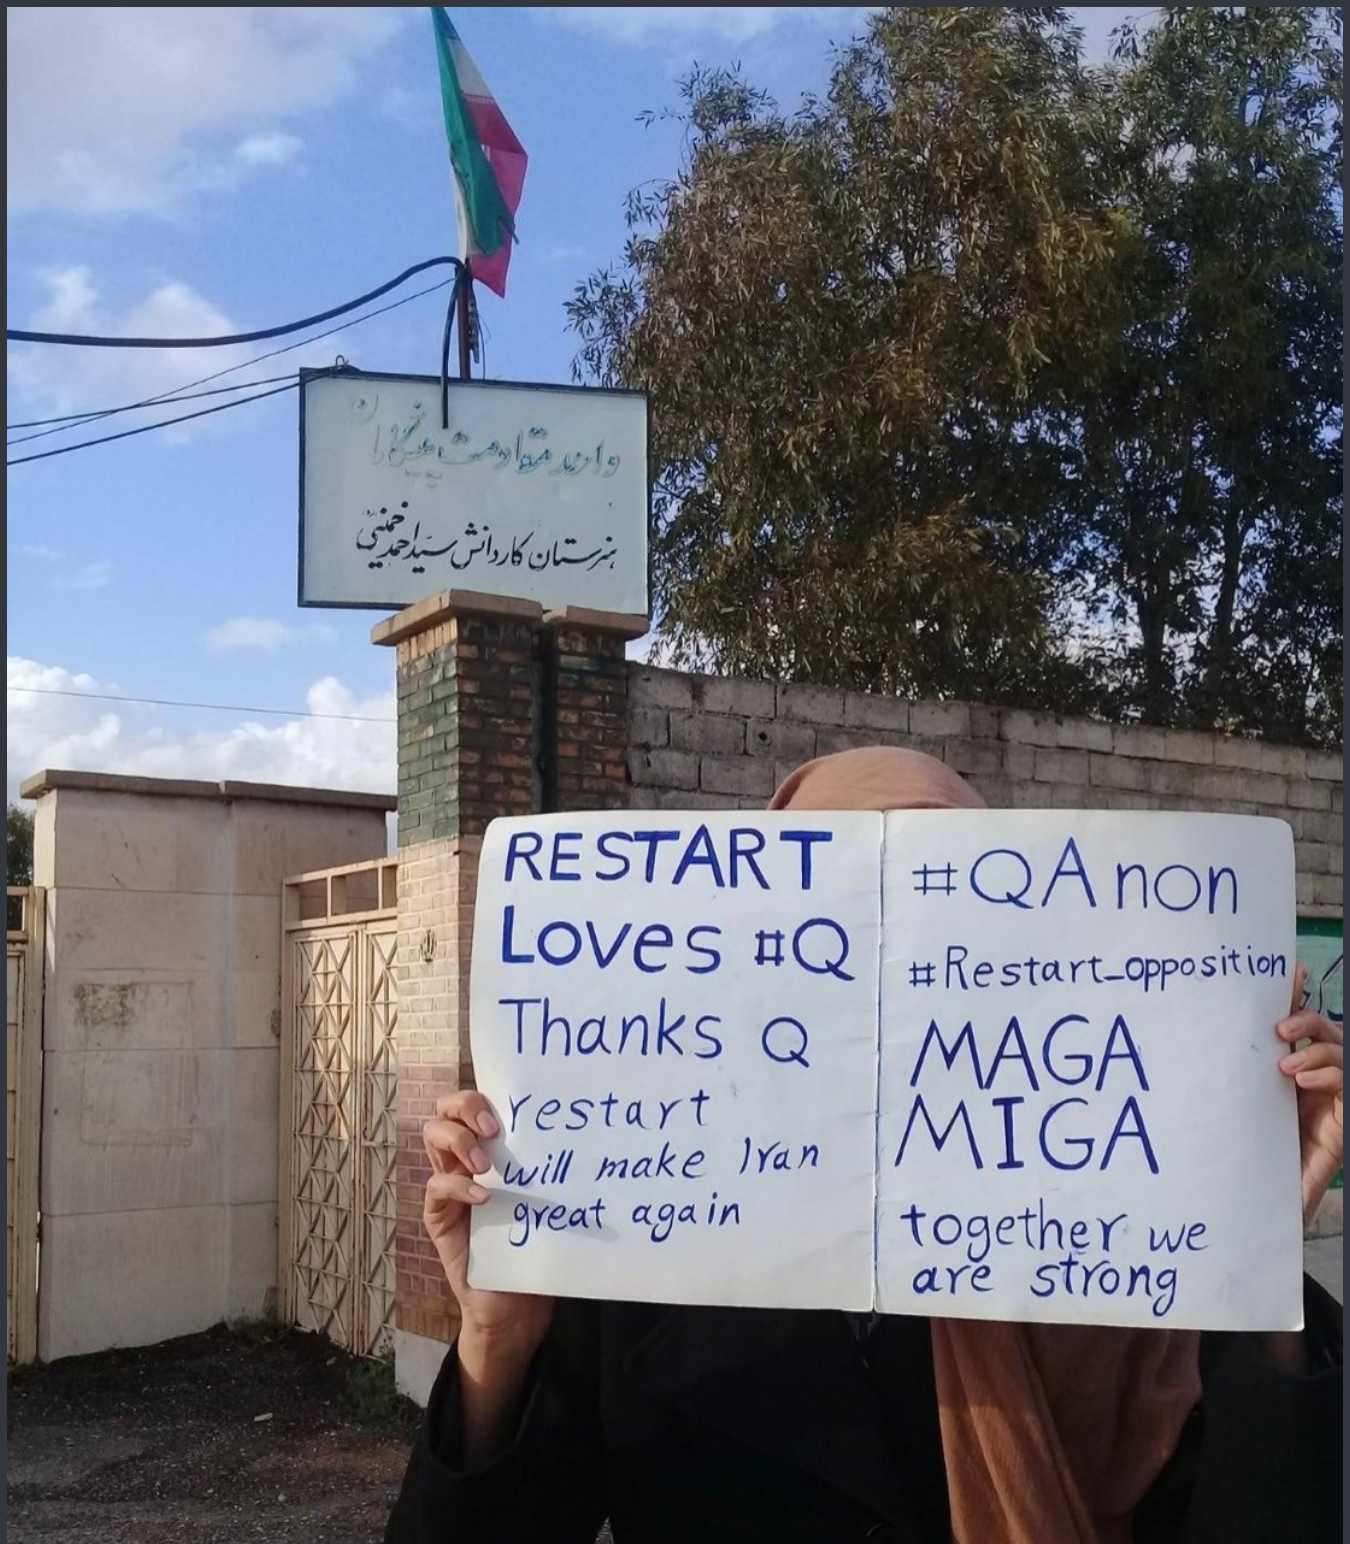 واحد مقاومت پیشگامان
هنرستان کاردانش سیّد احمد خمینی
RESTART
Loves #Q
Thanks Q
restart
will make Iran
great again
#QAnon
#Restart_opposition
MAGA
MIGA
together we
are strong